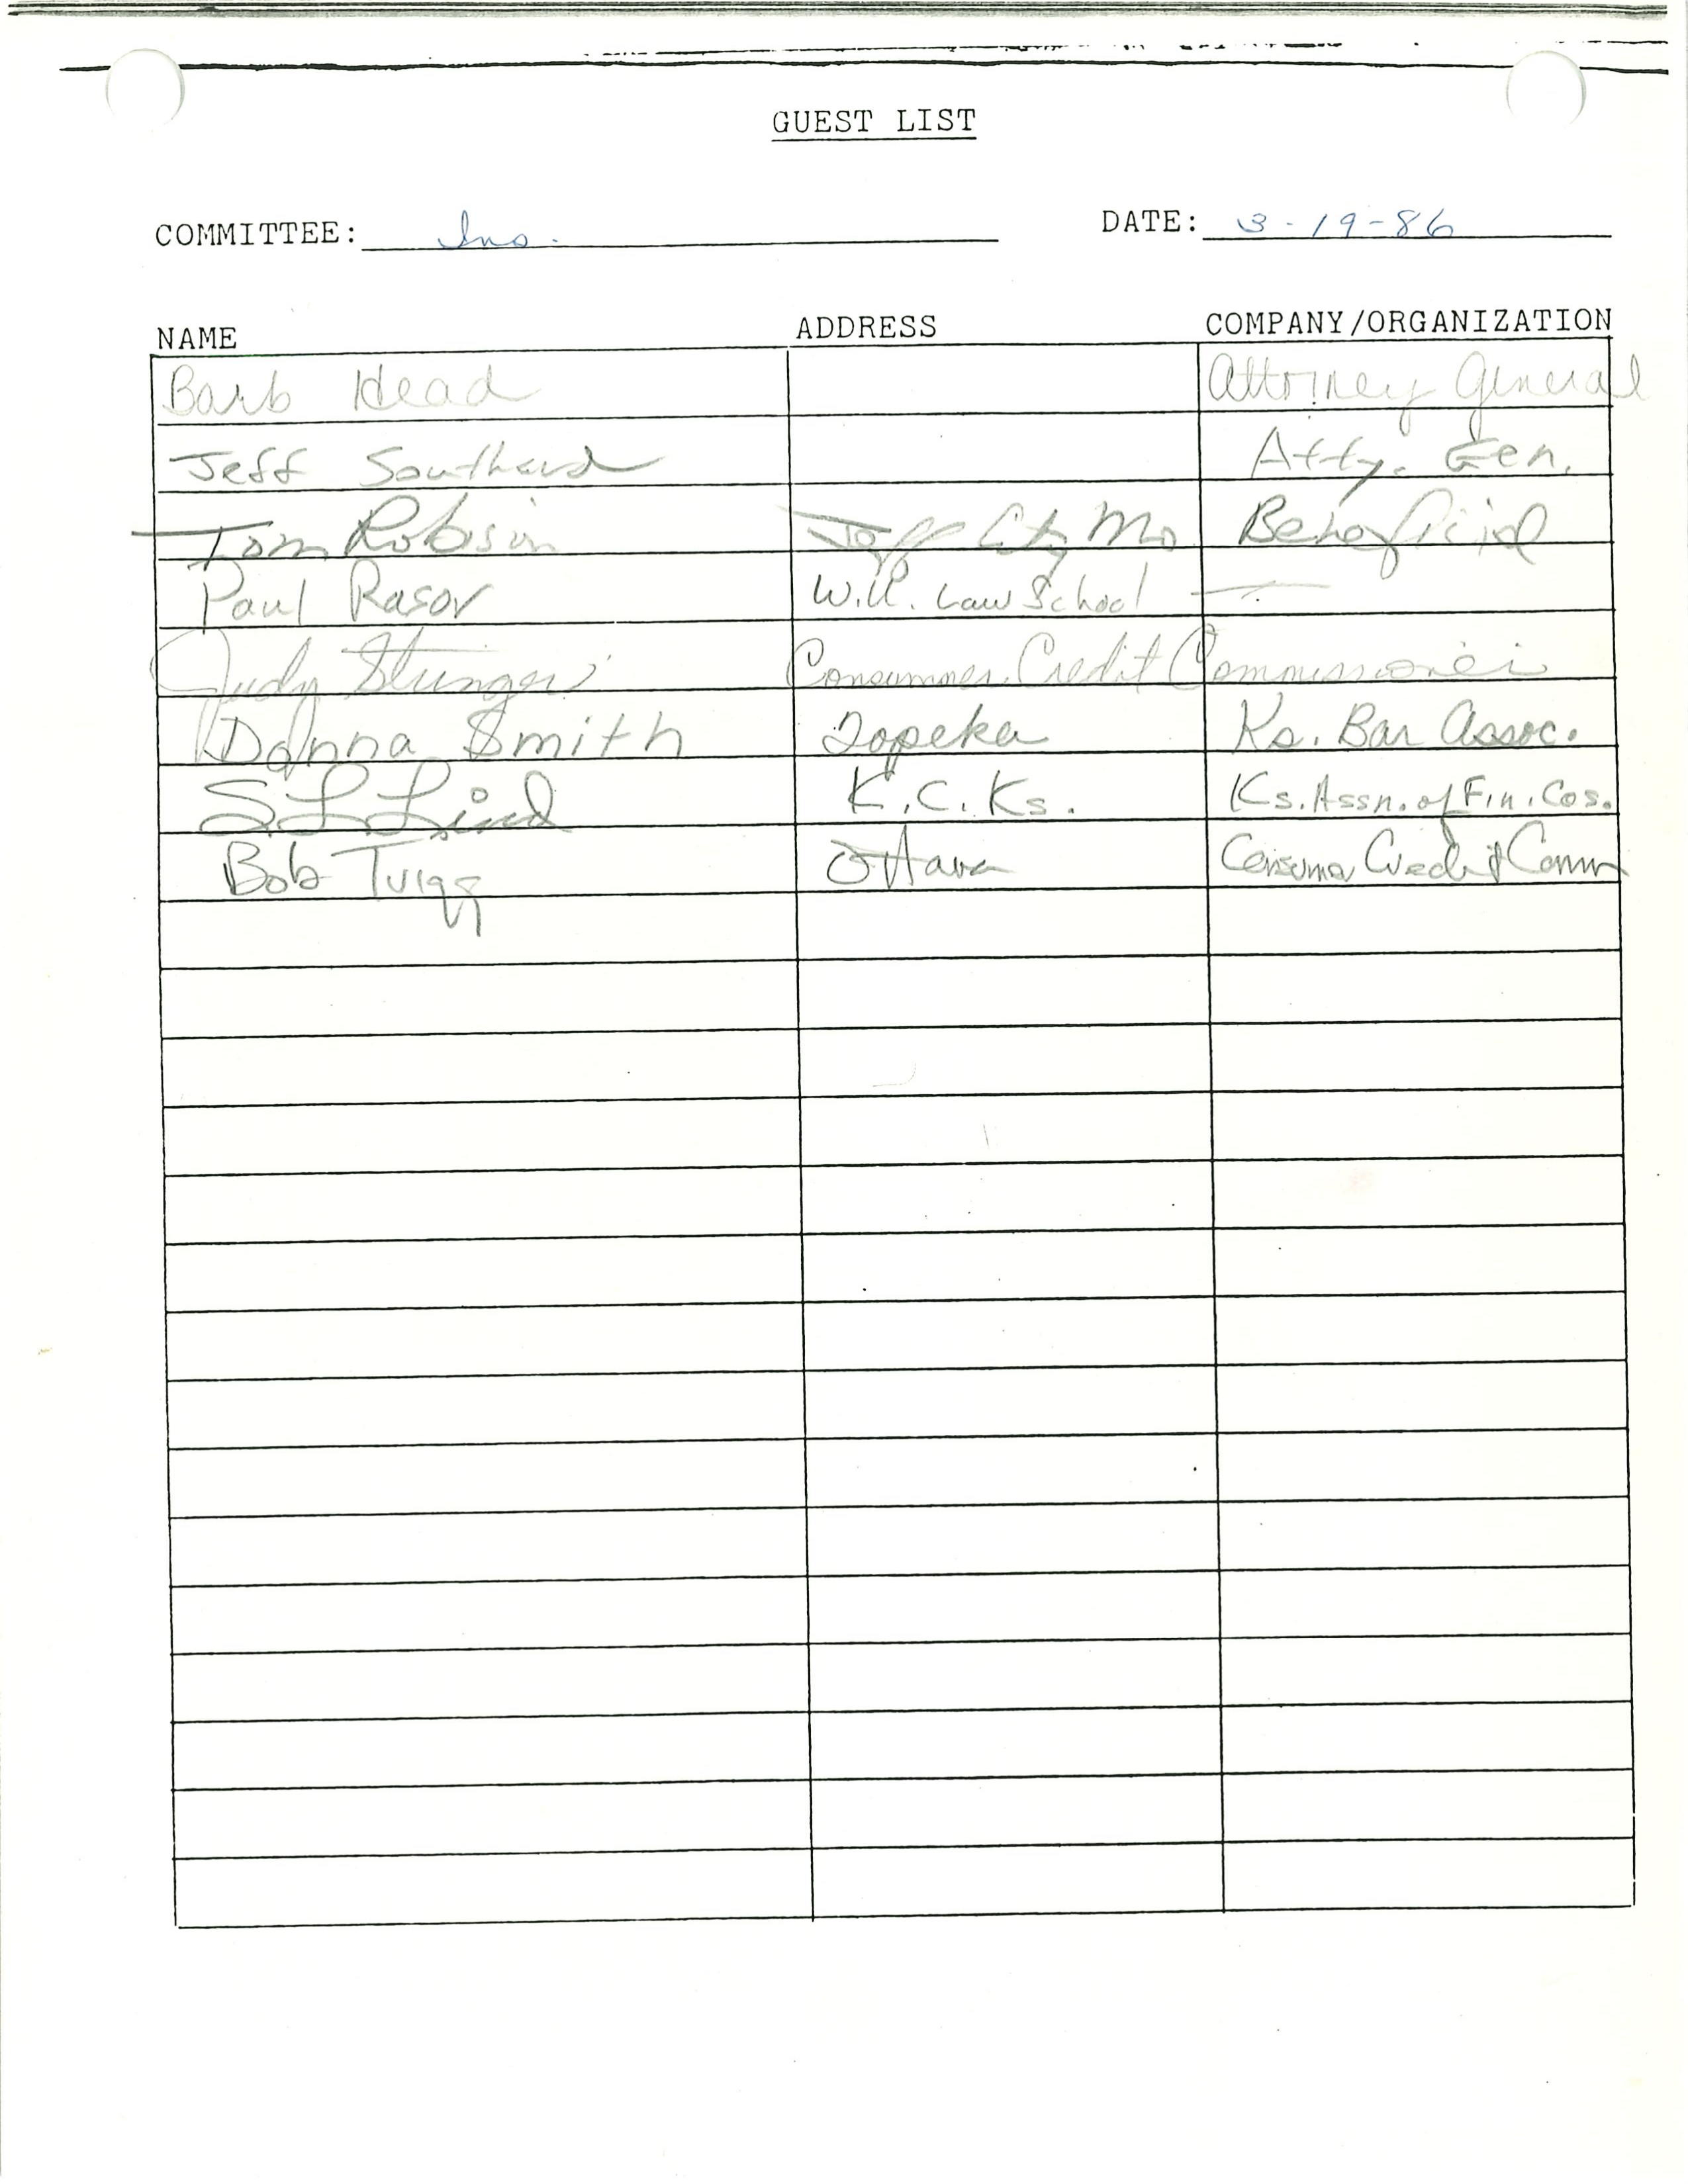 GUEST LIST
COMMITTEE: Ins. DATE: 3-19-86
NAME ADDRESS COMPANY/ORGANIZATION
Barb Head Attorney General
Jeff Southard Atty. Gen.
Tom Robison Jeff City Mo Beneficial
Paul Rasor W.U. Law School —
Judy Stringer Consumer Credit Commissioner
Donna Smith Topeka Ks. Bar Assoc.
S L Lind K.C. Ks. Ks. Assn. of Fin. Cos.
Bob Twigg Ottawa Consumer Credit Comm